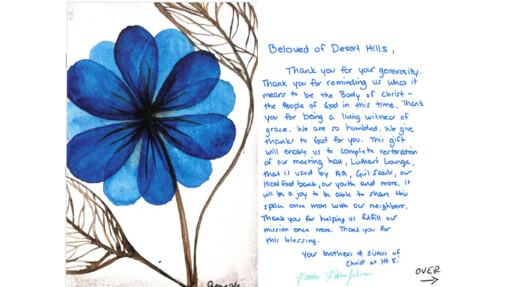 Beloved of Desert Hills,
Thank you for your generosity.
Thank you for reminding us what it
means to be the Body of Christ -
the People of God in this time. Thank
you for being a living witness of
grace. We are so humbled. We give
thanks to God for you. This gift
will enable us to complete restoration
of our meeting hall, Luther Lounge,
that is used by AA, Girl Scouts, our
local food bank, our youth and more. It
will be a joy to be able to share this
space once more with our neighbors.
Thank you for helping us fulfill our
mission once more. Thank you for
this blessing.
Your brothers & sisters of
Christ at
Pastor
OVER